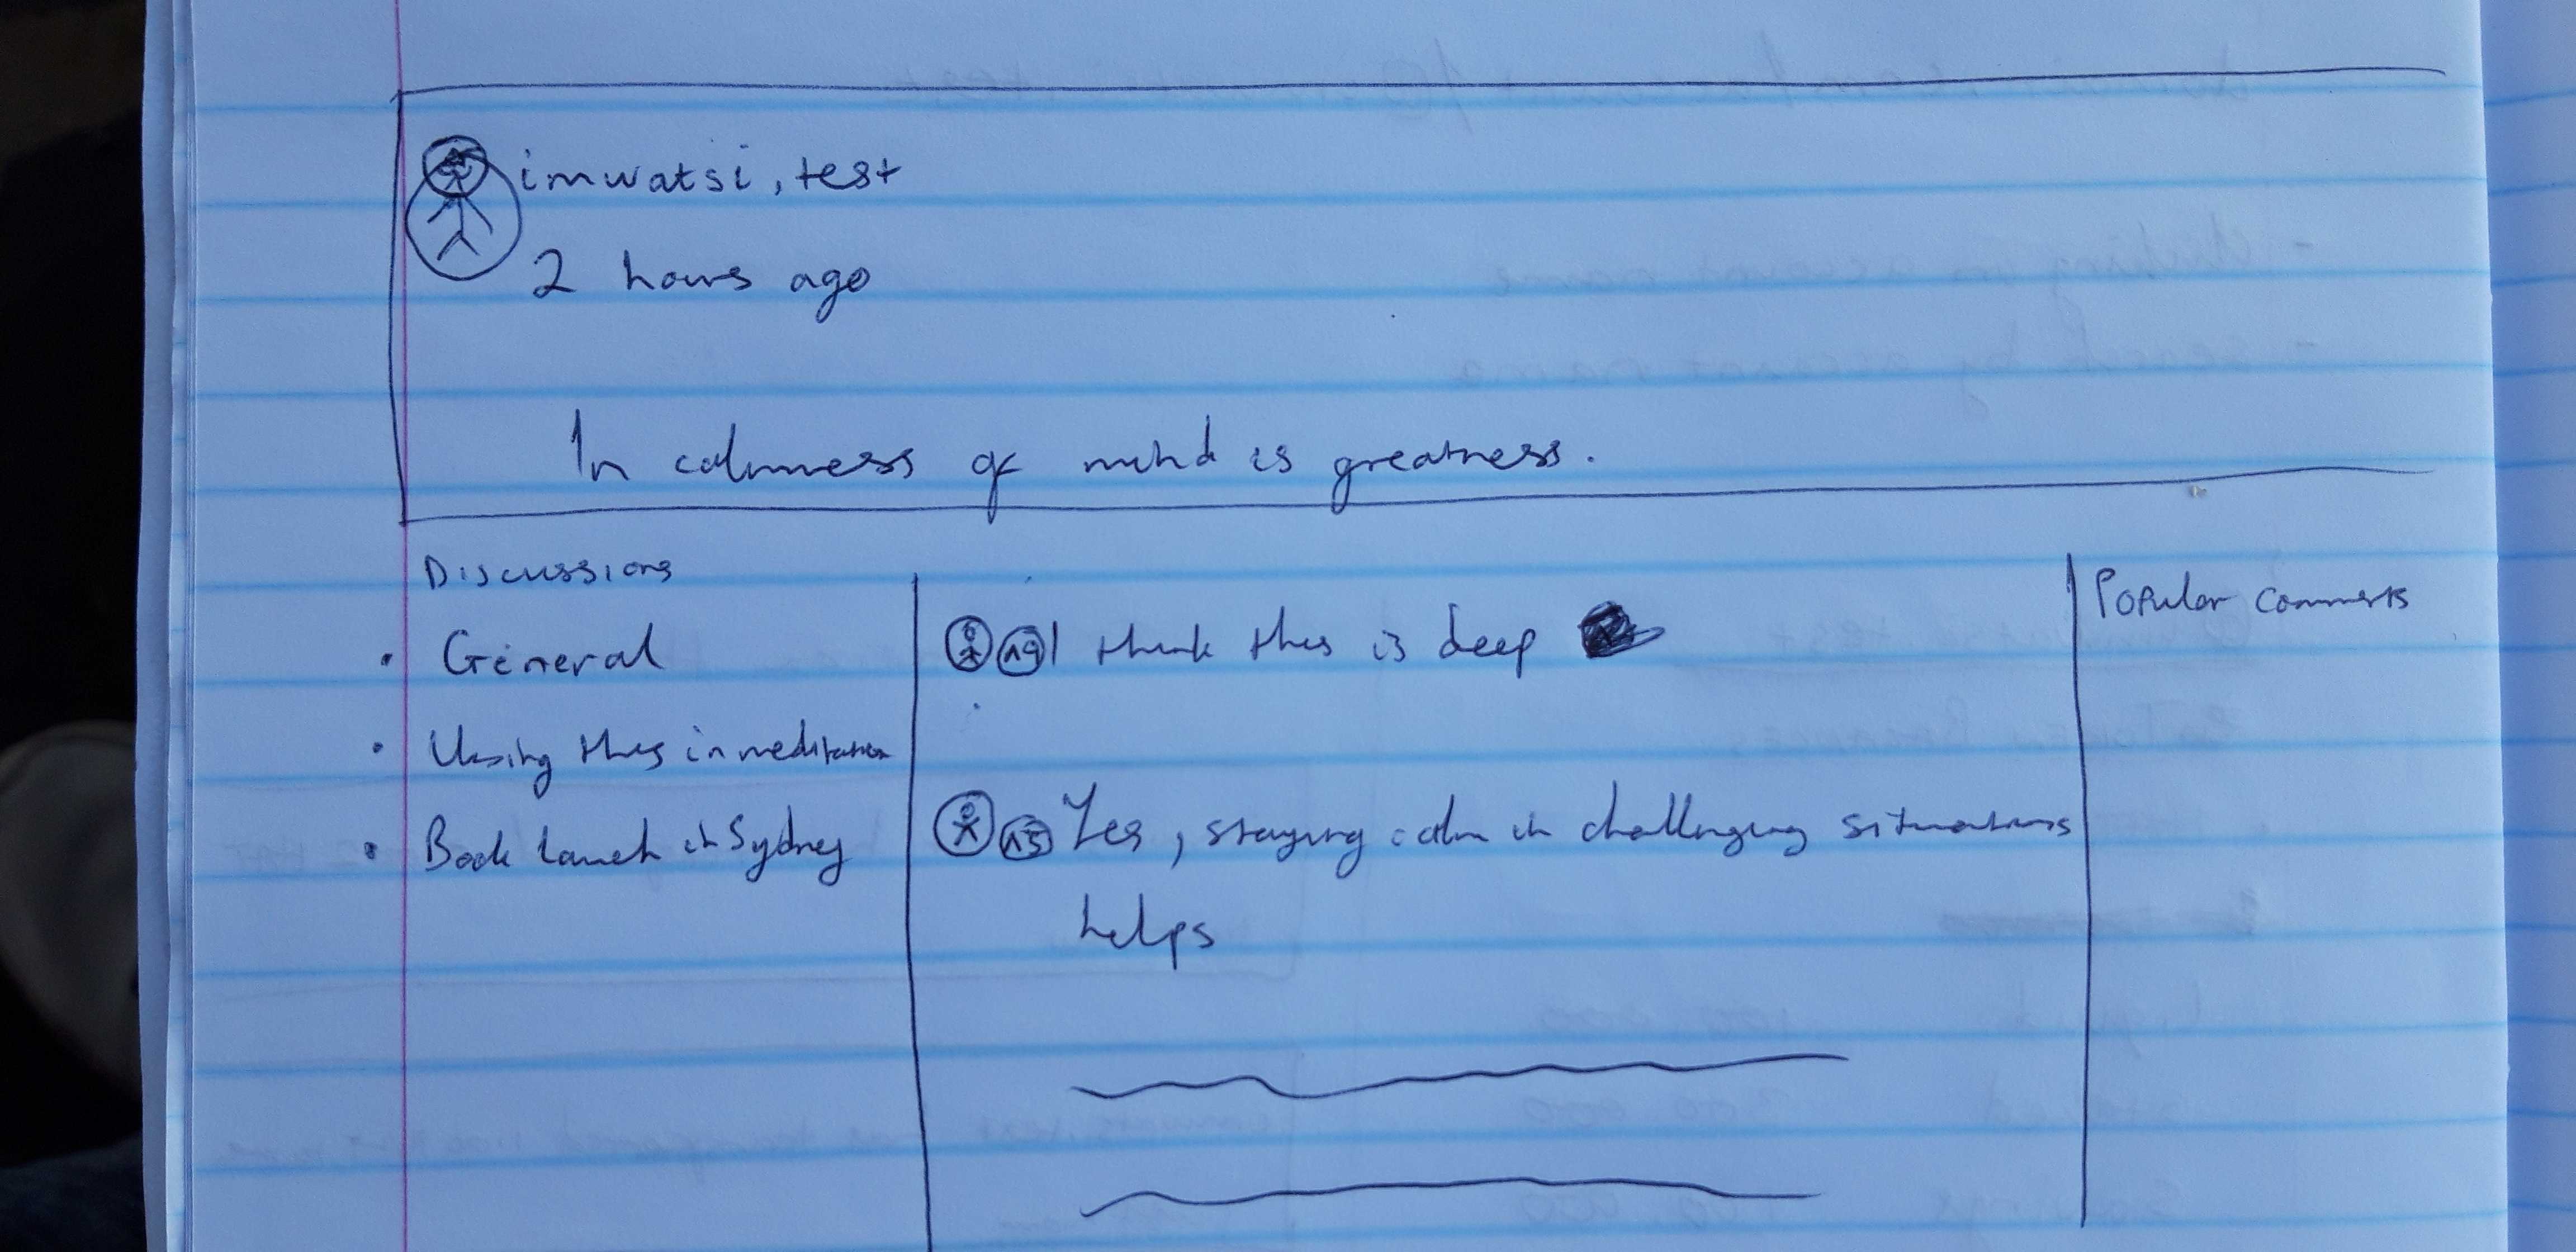 imwatsi, test
2 hours ago
In calmness of mind is greatness.
Discussions
• General
• Using this in meditation
• Book launch in Sydney
^9 I think this is deep
^5 Yes, staying calm in challenging situations
helps
Popular comments